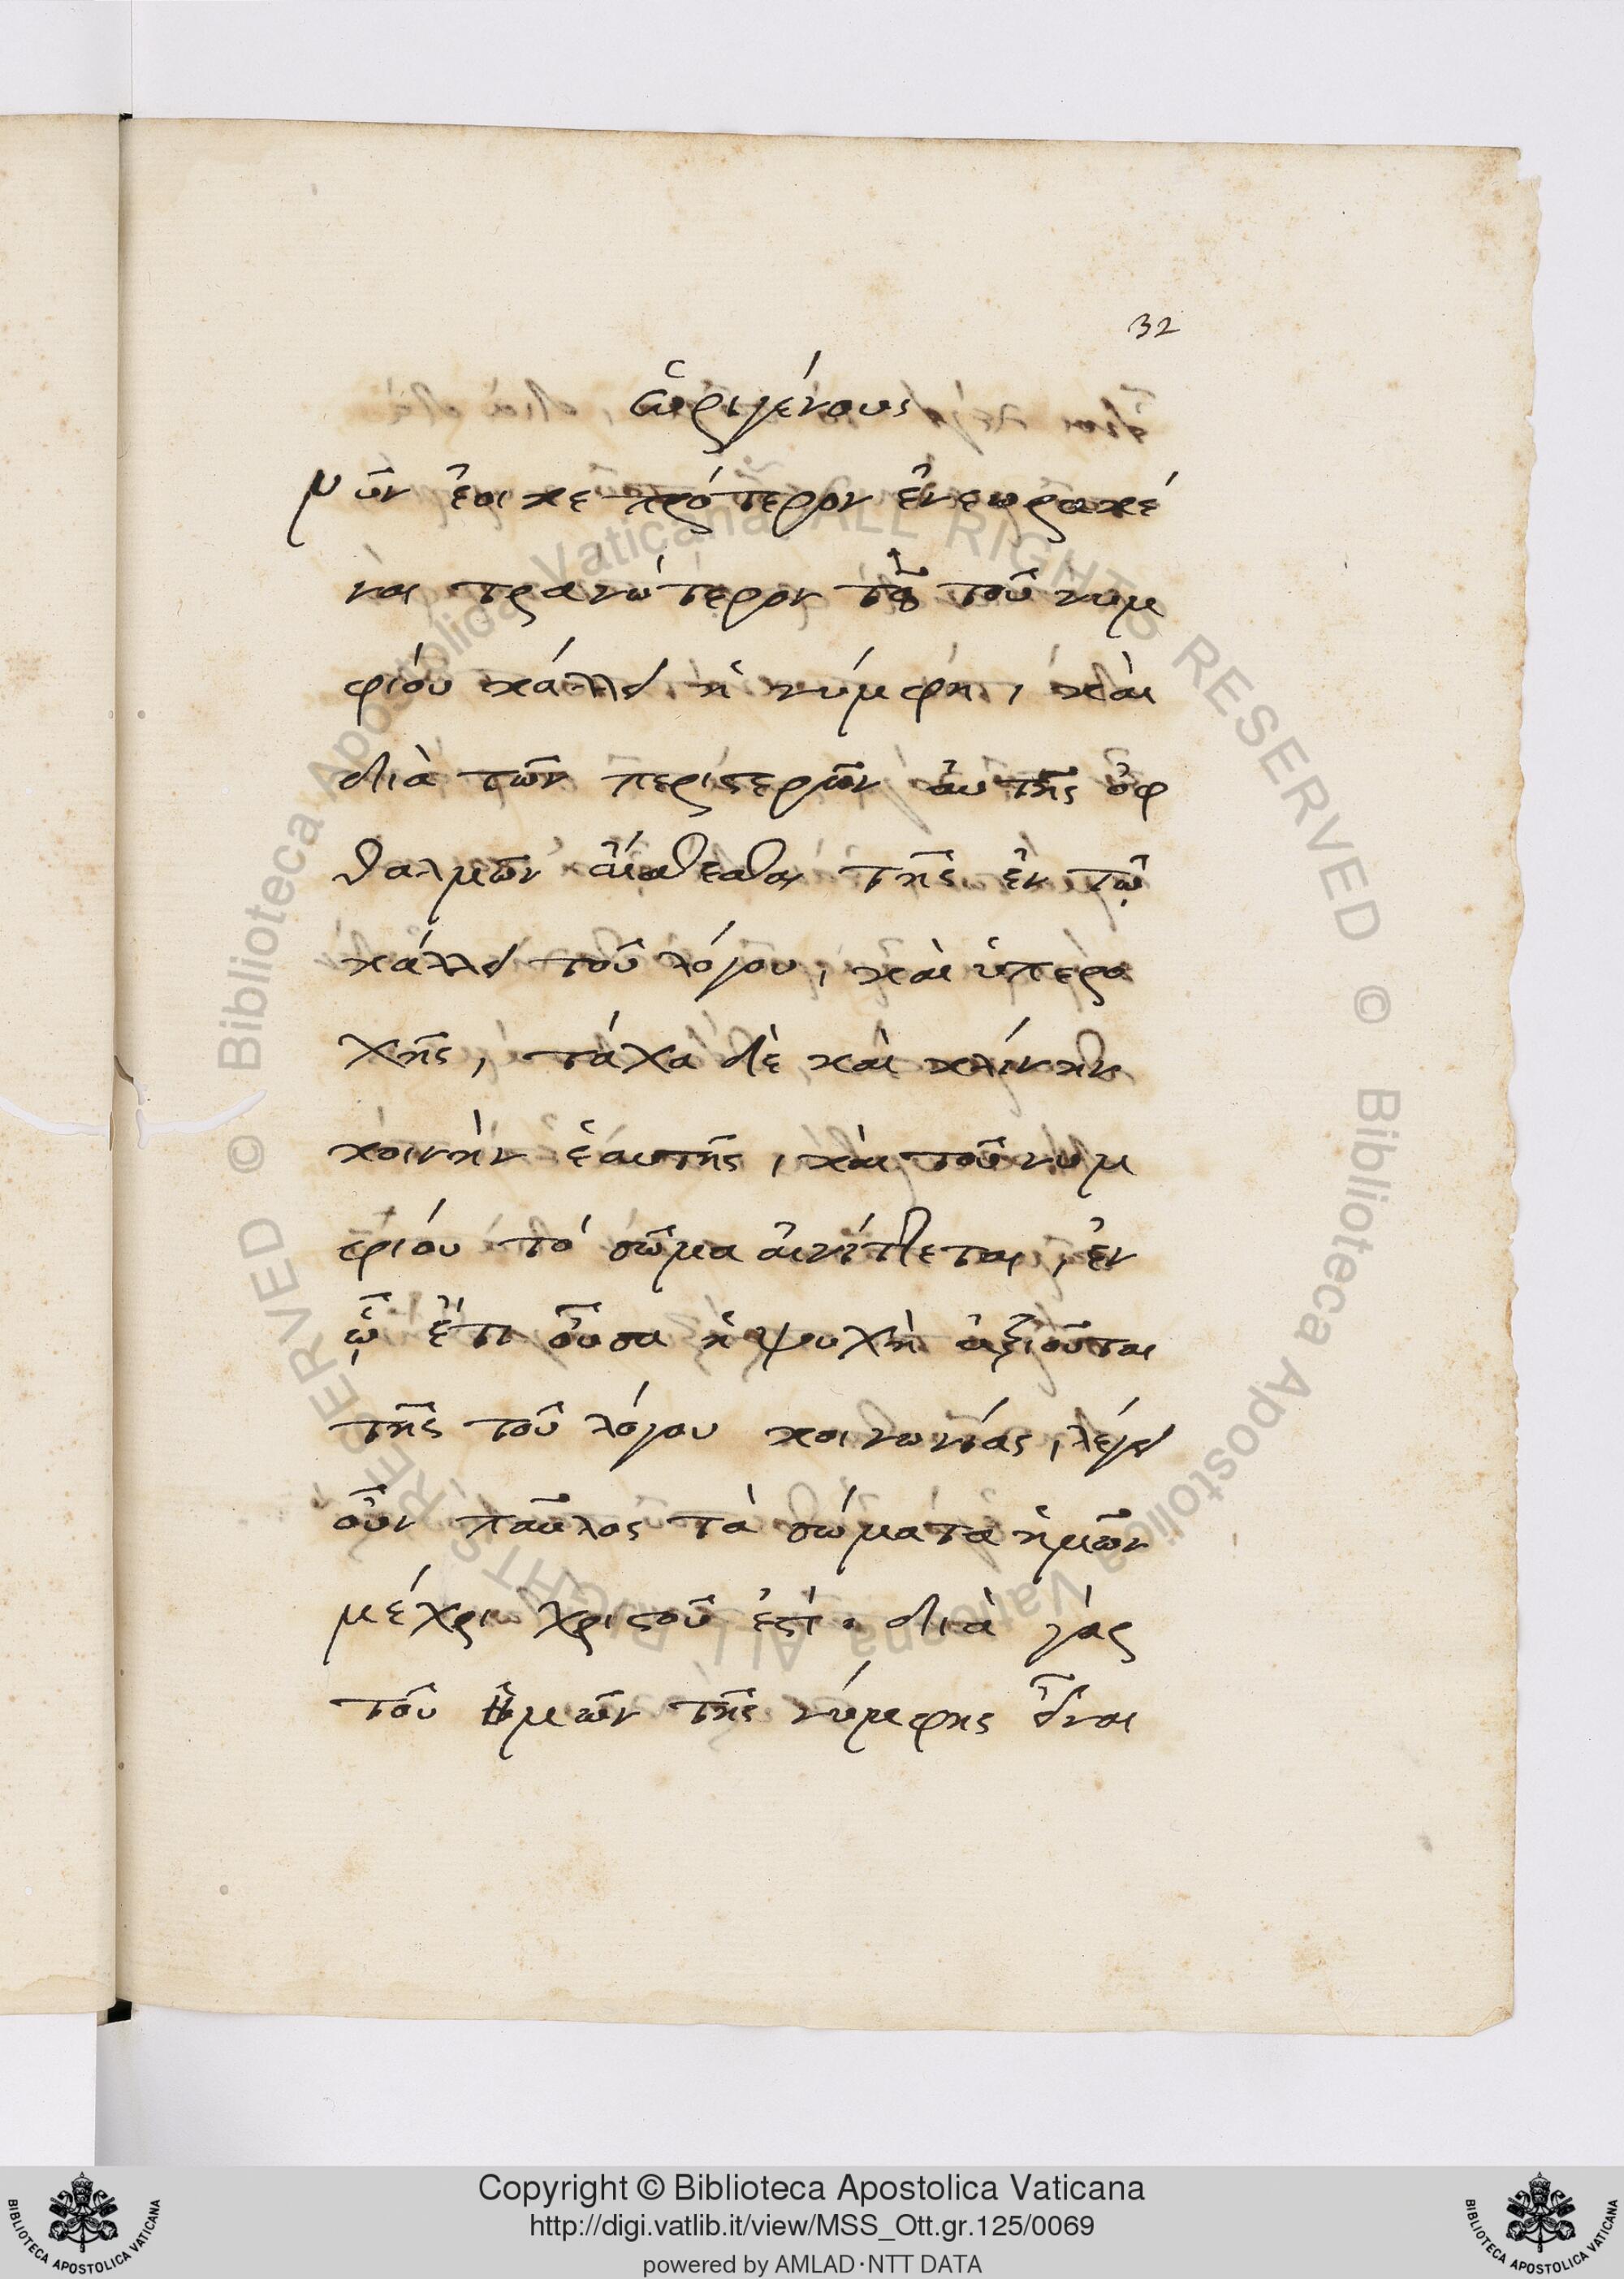 32
ὠριγένους
νῦν ἔοικε πρότερον ἐνεωρακέ
ναι τρανώτερον τῷ τοῦ νυμ
φίου κάλλει ἡ νύμφη, καὶ
διὰ τῶν περιστερῶν αὐτῆς ὀφ
θαλμῶν αἰσθέσθαι τῆς ἐν τῷ
κάλλει τοῦ λόγου, καὶ ὑπερο
χῆς, τάχα δὲ καὶ κλίνην
κοινὴν ἑαυτῆς, καὶ τοῦ νυμ
φίου τὸ σῶμα αἰνίττεται, ἐν
ᾧ ἔτι οὖσα ἡ ψυχὴ ἀξιοῦται
τῆς τοῦ λόγου κοινωνίας, λέγει
οὖν παῦλος τὰ σώματα ἡμῶν
μέχρι χριστοῦ ἐστί. διὰ γὰρ
τοῦ ἡμῶν τῆς νύμφης εἶναι
© Biblioteca Apostolica Vaticana ALL RIGHTS RESERVED © Biblioteca Apostolica Vaticana ALL RIGHTS RESERVED
BIBLIOTECA APOSTOLICA VATICANA
Copyright © Biblioteca Apostolica Vaticana
http://digi.vatlib.it/view/MSS_Ott.gr.125/0069
powered by AMLAD·NTT DATA
BIBLIOTECA APOSTOLICA VATICANA